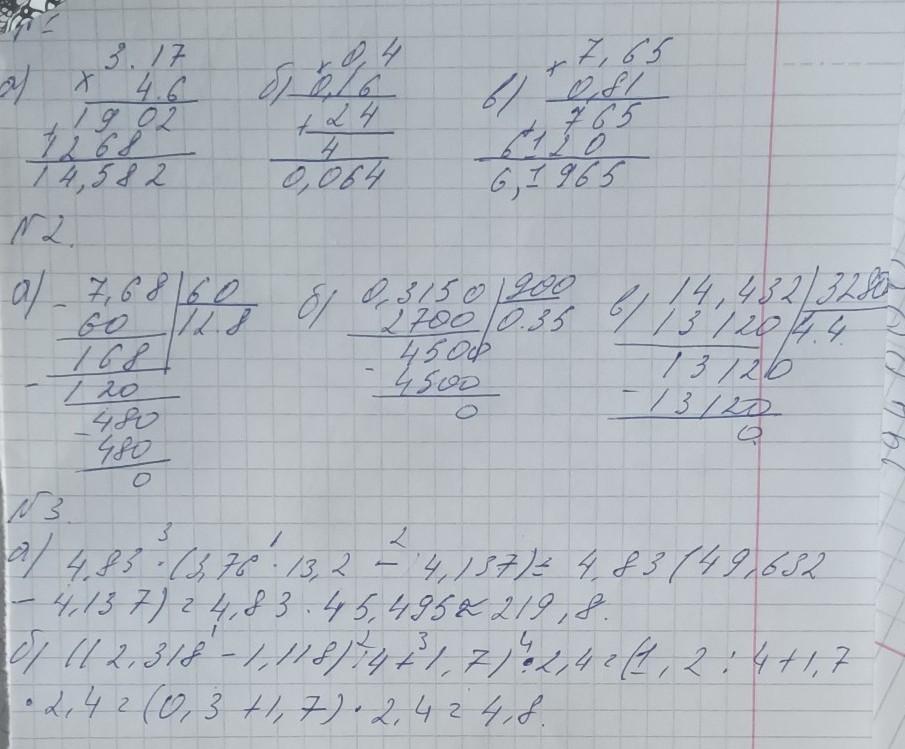 а) × 3.17 б) × 0,4 в) × 7,65
4.6 0,16 0,81
+ 1902 + 24 + 765
1268 4 6120
14,582 0,064 6,1965
№2.
а) - 7,68 | 60 б) 0,3150 | 900 в) 14,432 | 3280
60 12.8 2700 0.35 13120 4.4
168 4500 13120
- 120 - 4500 - 13120
- 480 0 0
480
0
№3.
3 1 2
а) 4,83 · (3,76 · 13,2 - 4,137) = 4,83 (49,632
- 4,137) = 4,83 · 45,495 ≈ 219,8.
1 2 3 4
б) ((2,318 - 1,118) : 4 + 1,7) · 2,4 = (1,2 : 4 + 1,7
· 2,4 = (0,3 + 1,7) · 2,4 = 4,8.